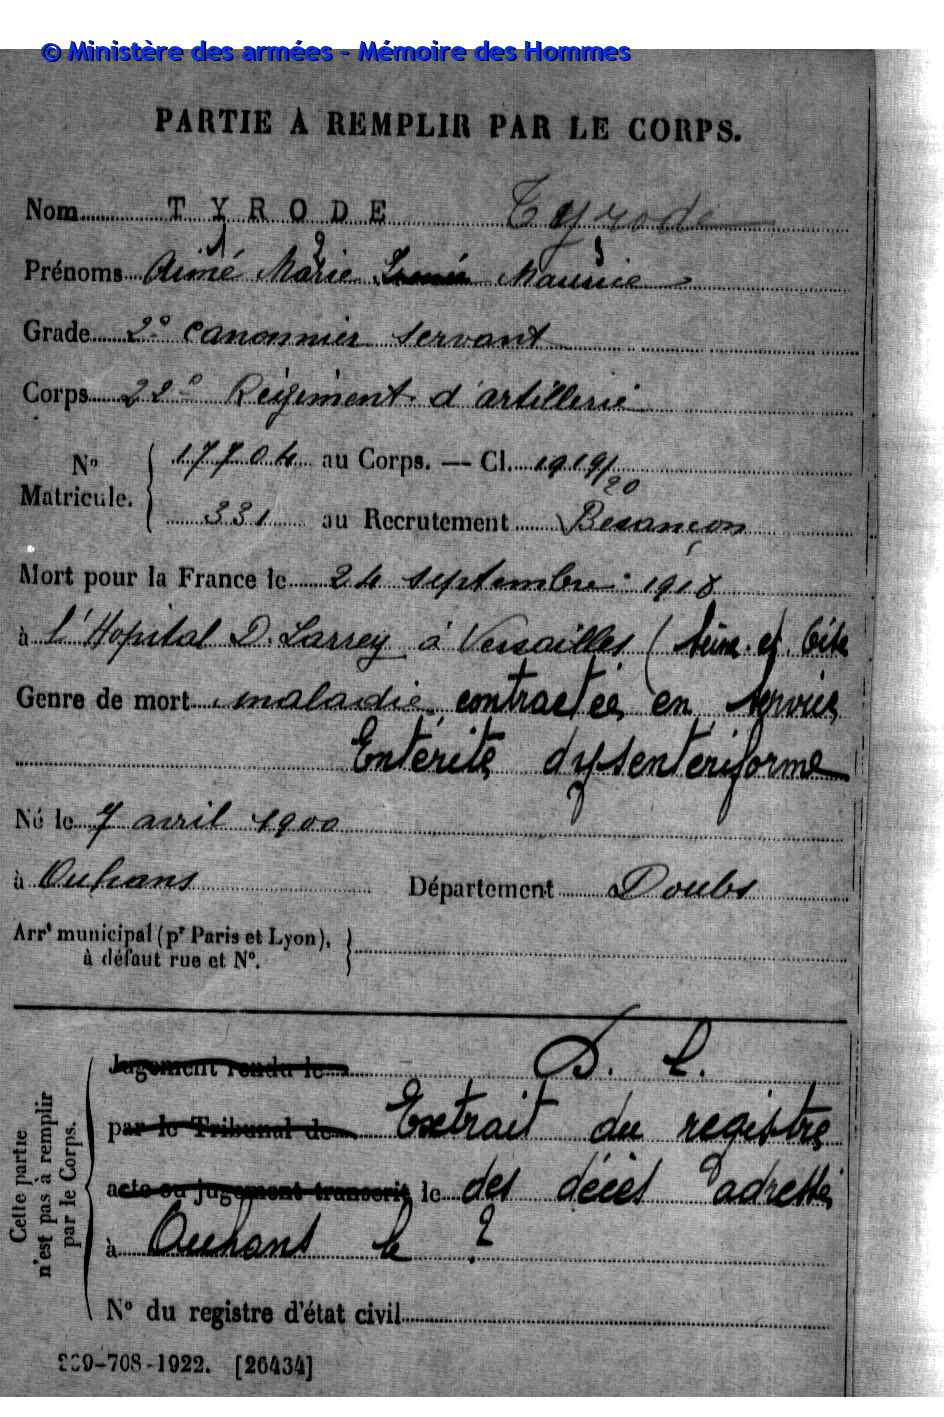 © Ministère des armées - Mémoire des Hommes
PARTIE A REMPLIR PAR LE CORPS.
Nom TYRODE Tyrode
1 2 3
Prénoms Aimé Marie Maurice
Grade 2e canonnier servant
Corps 22e Régiment d'artillerie
No Matricule. 17704 au Corps. — Cl. 1919/20
331 au Recrutement Besançon
Mort pour la France le 24 septembre 1918
à l'Hopital D. Larrey à Versailles (Seine et Oise
Genre de mort maladie contractée en service
Entérite dysentériforme
Né le 7 avril 1900
à Ouhans Département Doubs
Arrt municipal (pr Paris et Lyon),
à défaut rue et No.
Cette partie n'est pas à remplir par le Corps.
Jugement rendu le D. L.
par le Tribunal de Extrait du registre
acte ou jugement transcrit le des décès adressé
à Ouhans le ?
No du registre d'état civil
-708-1922. [26434]